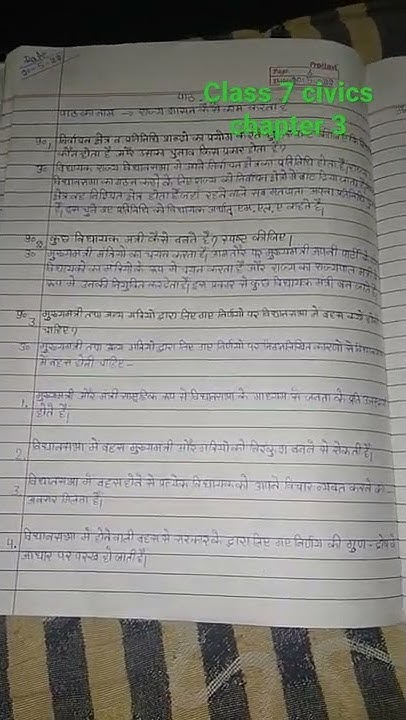 Date
Class 7 civics
chapter 3
पाठ का नाम → राज्य शासन कैसे काम करता है
प्र०1 निर्वाचन क्षेत्र व प्रतिनिधि शब्दों का प्रयोग करते हुए
कौन होता है और उसका चुनाव किस प्रकार होता है?
उ० विधायक राज्य विधानसभा में अपने निर्वाचन क्षेत्र का प्रतिनिधि होता है।
विधानसभा का गठन करने के लिए राज्य को निर्वाचन क्षेत्रों में बाँट दिया जाता है
क्षेत्र वह निश्चित क्षेत्र होता है जहाँ रहने वाले सब मतदाता अपना प्रतिनिधि
है, इस चुने हुए प्रतिनिधि को विधायक अर्थात् एम.एल.ए कहते है।
प्र०2 कुछ विधायक मंत्री कैसे बनते हैं? स्पष्ट कीजिए।
उ० मुख्यमंत्री मंत्रियों का चयन करता है। आमतौर पर मुख्यमंत्री अपनी पार्टी के
विधायकों का मंत्रियों के रूप में चयन करता है और राज्य का राज्यपाल मंत्री
रूप में उनकी नियुक्ति करता है। इस प्रकार से कुछ विधायक मंत्री बन जाते
प्र०3. मुख्यमंत्री तथा अन्य मंत्रियों द्वारा लिए गए निर्णयों पर विधानसभा में बहस क्यों होनी
चाहिए?
उ० मुख्यमंत्री तथा अन्य मंत्रियों द्वारा लिए गए निर्णयों पर निम्नलिखित कारणों से विधानसभा
में बहस होनी चाहिए-
1. मुख्यमंत्री और मंत्री सामूहिक रूप से विधानसभा के माध्यम से जनता के प्रति
होते हैं।
2 विधानसभा में बहस मुख्यमंत्री और मंत्रियों को निरंकुश बनने से रोकती है।
3 विधानसभा में बहस होने से प्रत्येक विधायक को अपने विचार व्यक्त करने का
अवसर मिलता है।
4. विधानसभा में होने वाली बहस से सरकार के द्वारा लिए गए निर्णय की गुण-दोष के
आधार पर परख हो जाती है।